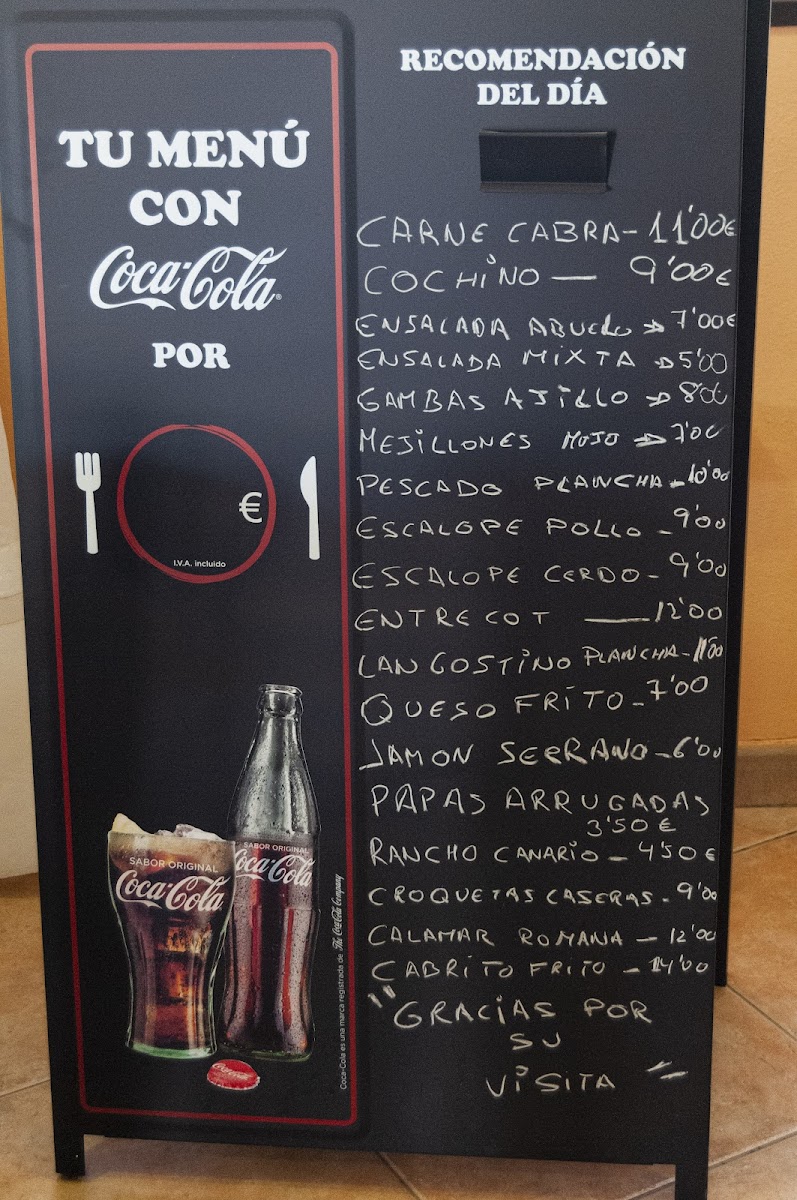 TU MENÚ
CON
Coca-Cola®
POR
€
I.V.A. incluido
SABOR ORIGINAL
Coca-Cola
SABOR ORIGINAL
Coca-Cola
Coca-Cola
Coca-Cola es una marca registrada de The Coca-Cola Company
RECOMENDACIÓN
DEL DÍA
CARNE CABRA - 11'00€
COCHINO — 9'00€
ENSALADA ABUELO → 7'00€
ENSALADA MIXTA → 5'00
GAMBAS AJILLO → 8'00
MEJILLONES MOJO → 7'00
PESCADO PLANCHA - 10'00
ESCALOPE POLLO - 9'00
ESCALOPE CERDO - 9'00
ENTRECOT — 12'00
LANGOSTINO PLANCHA - 11'00
QUESO FRITO - 7'00
JAMON SERRANO - 6'00
PAPAS ARRUGADAS
3'50€
RANCHO CANARIO - 4'50€
CROQUETAS CASERAS - 9'00
CALAMAR ROMANA - 12'00
CABRITO FRITO - 14'00
"GRACIAS POR
SU
VISITA"